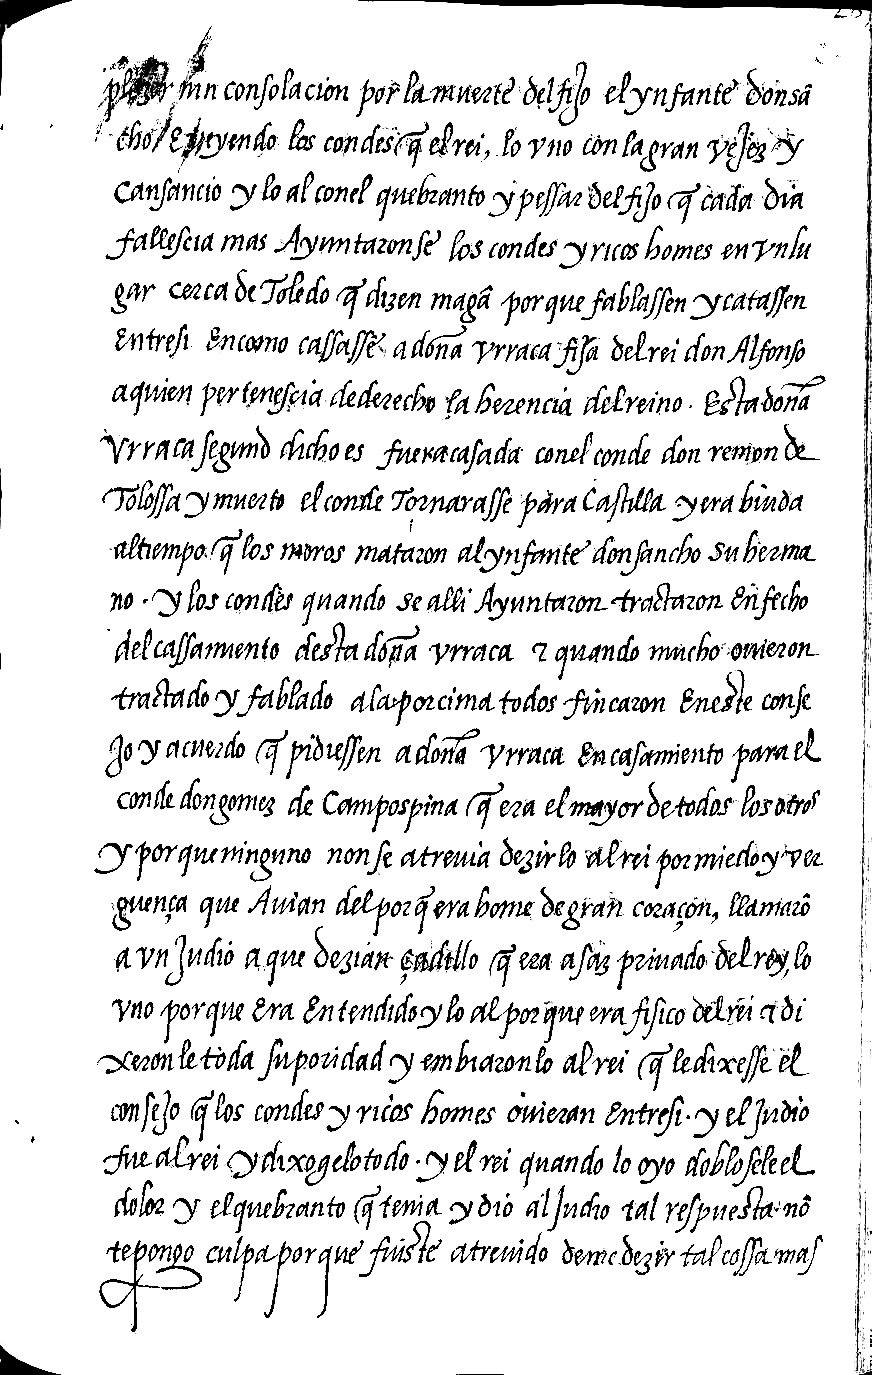 plazer nin consolacion por la muerte del fijo el ynfante don sā
cho / E veyendo los condes q̄ el rei, lo vno con la gran vejez y
cansancio y lo al con el quebranto y pessar del fijo q̄ cada dia
fallescia mas Ayuntaronse los condes y ricos homes en vn lu
gar cerca de Toledo q̄ dizen magā por que fablassen y catassen
Entresi En como cassassē a doña vrraca fija del rei don Alfonso
a quien pertenescia de derecho la herencia del reino. Esta doña
vrraca segund dicho es fuera casada con el conde don remon de
Tolossa y muerto el conde Tornarasse para Castilla y era biuda
al tiempo q̄ los moros mataron al ynfante don sancho su herma
no. y los condes quando se alli Ayuntaron tractaron En fecho
del cassamiento desta doña vrraca ⁊ quando mucho ovieron
tractado y fablado a la por cima todos fincaron En este conse
jo y acuerdo q̄ pidiessen a doña vrraca En casamiento para el
conde don gomez de Campospina q̄ era el mayor de todos los otros
y por que ninguno non se atrevia dezirlo al rei por miedo y ver
guença que Avian del por q̄ era home de gran coraçon, llamarō
a vn Judio a que dezian çadillo q̄ era asaz privado del rey, lo
vno por que Era Entendido y lo al por que era fisico del rei ⁊ di
xeronle toda su poridad y embiaronlo al rei q̄ le dixesse el
consejo q̄ los condes y ricos homes ovieran Entresi. y el Judio
fue al rei y dixogelo todo. y el rei quando lo oyo doblosele el
dolor y el quebranto q̄ tenia y dio al Judio tal respuesta. nō
te pongo culpa por que fuiste atrevido de me dezir tal cossa mas